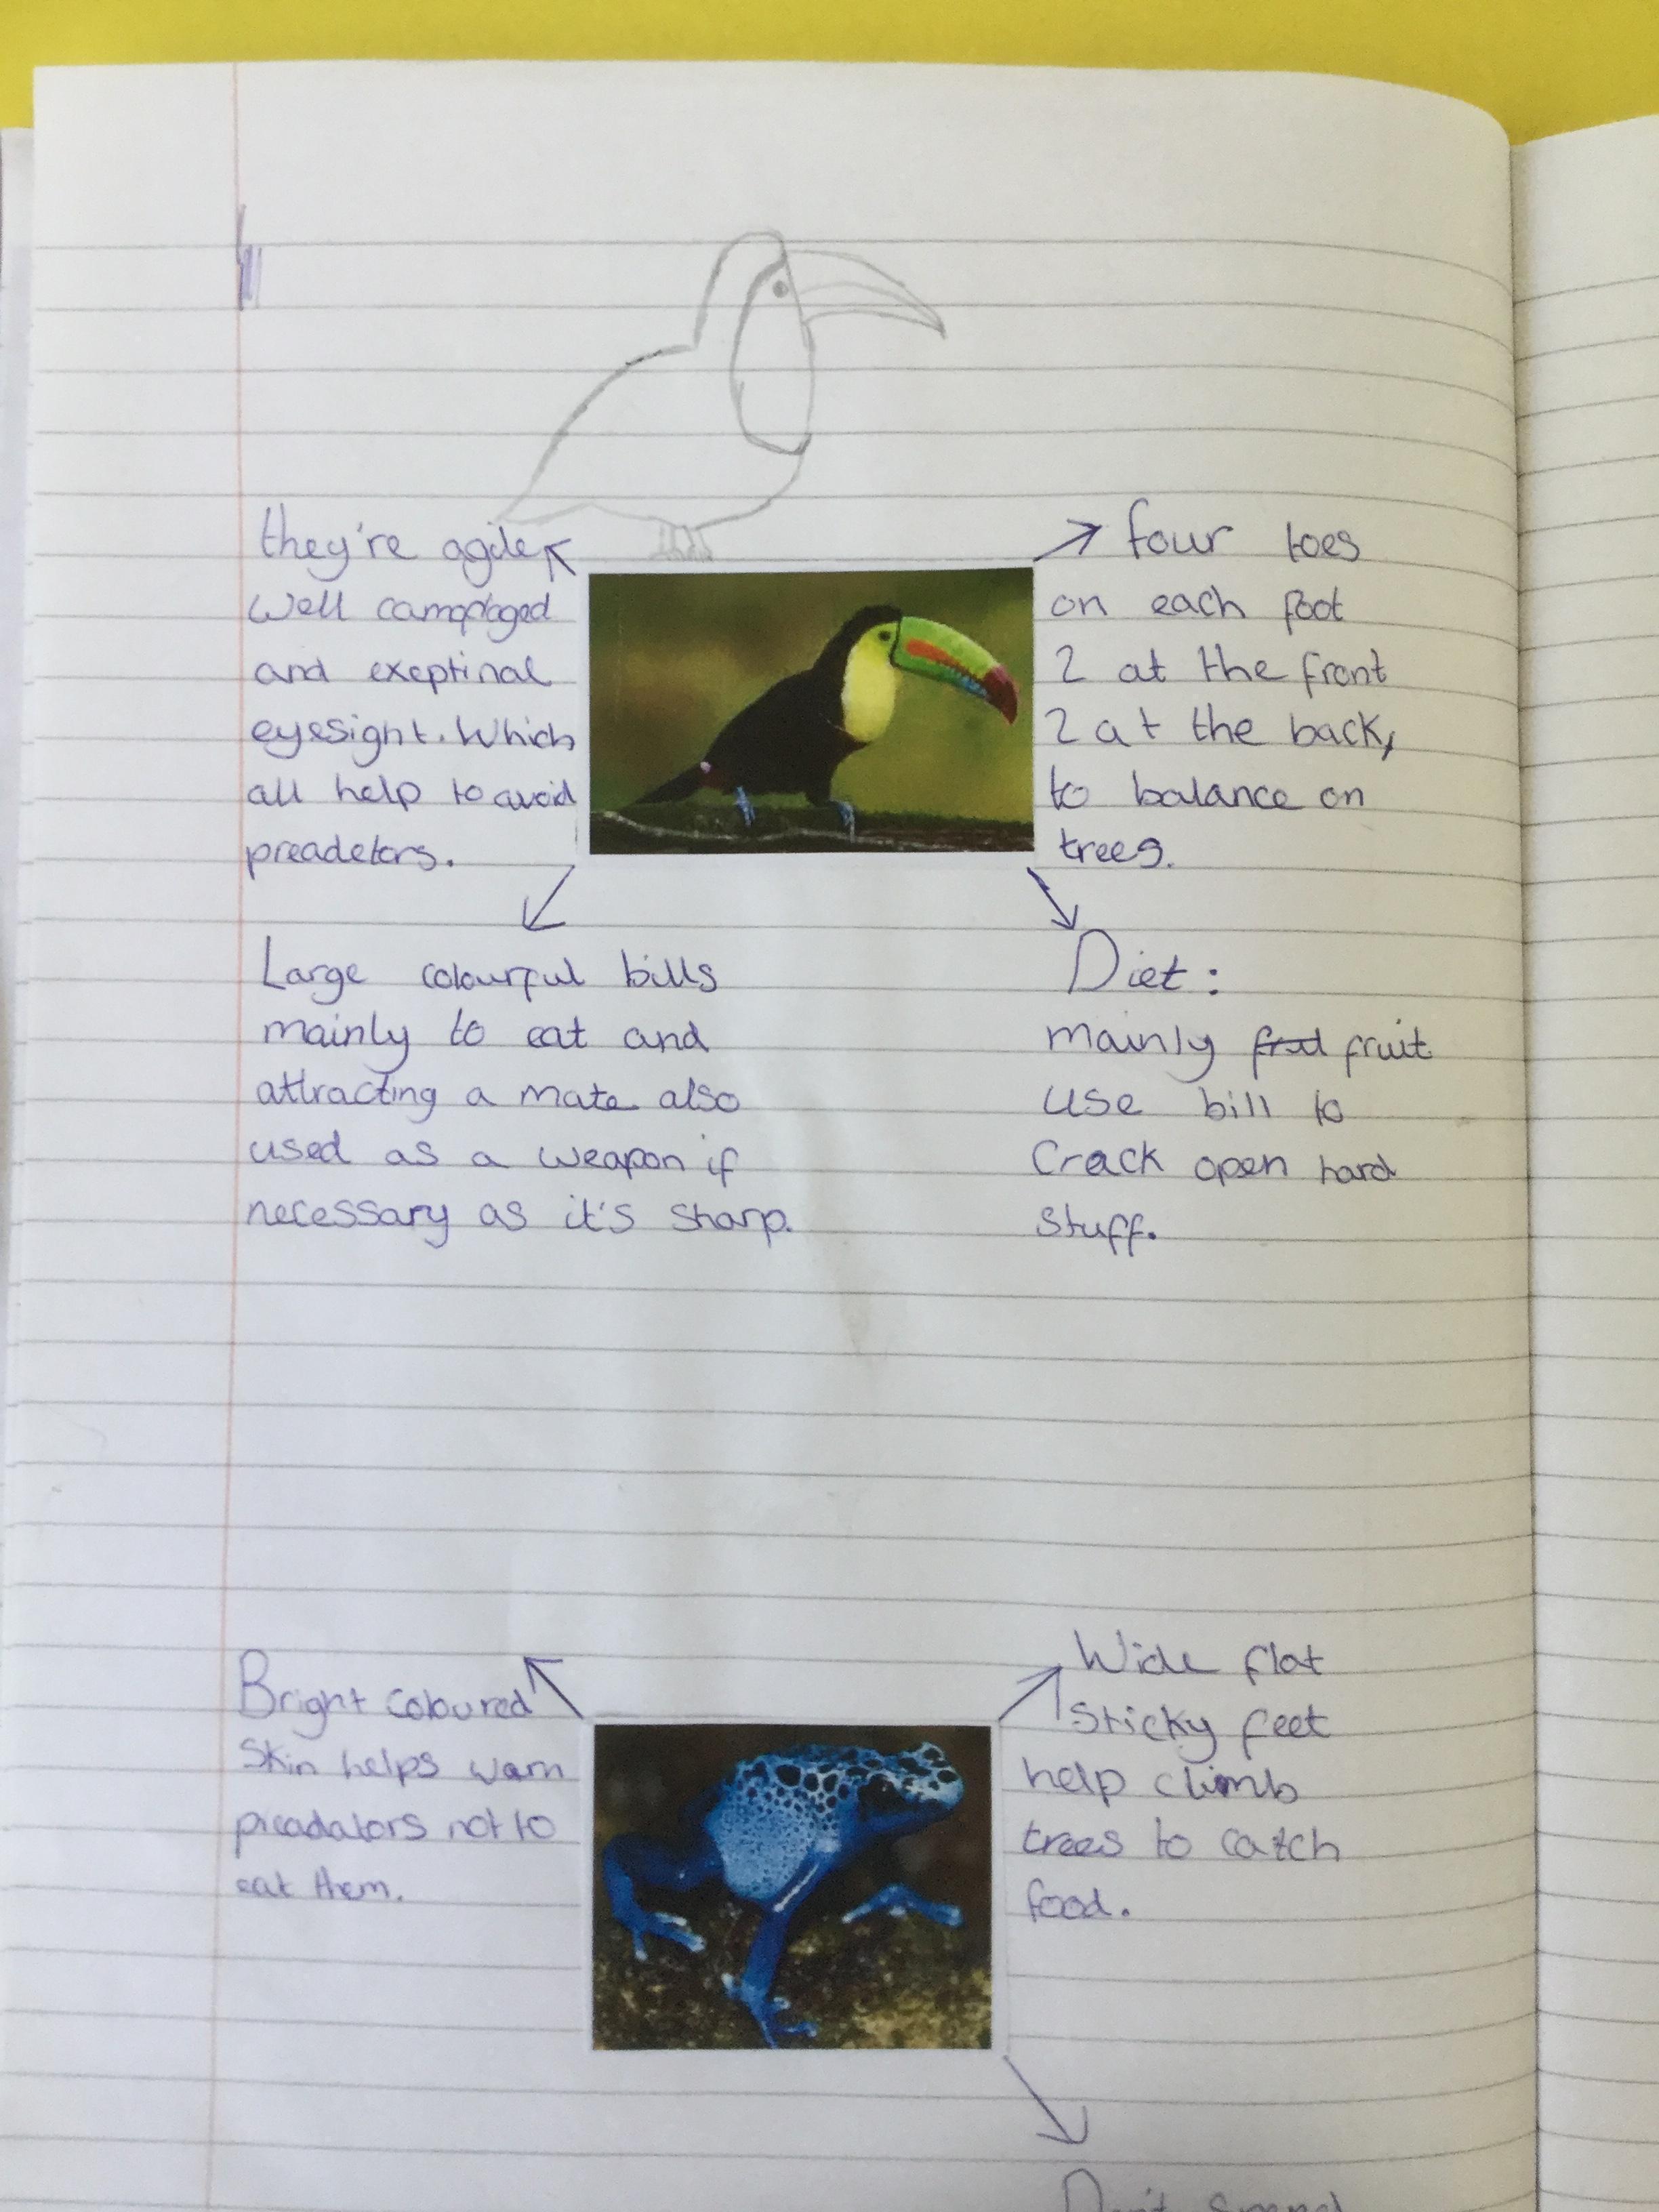 they're agile
Well camoflaged
and exeptinal
eyesight. Which
all help to avoid
preadetors.
four toes
on each foot
2 at the front
2 at the back,
to balance on
trees.
Large colourful bills
mainly to eat and
attracting a mate also
used as a weapon if
necessary as it's sharp.
Diet:
mainly fruit
use bill to
Crack open hard
stuff.
Bright coloured
Skin helps warn
preadators not to
eat them.
Wide flat
Sticky feet
help climb
trees to catch
food.
Don't spend